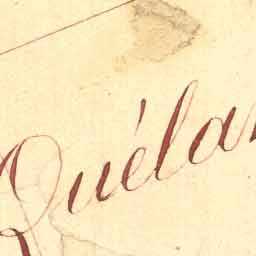 Quéla